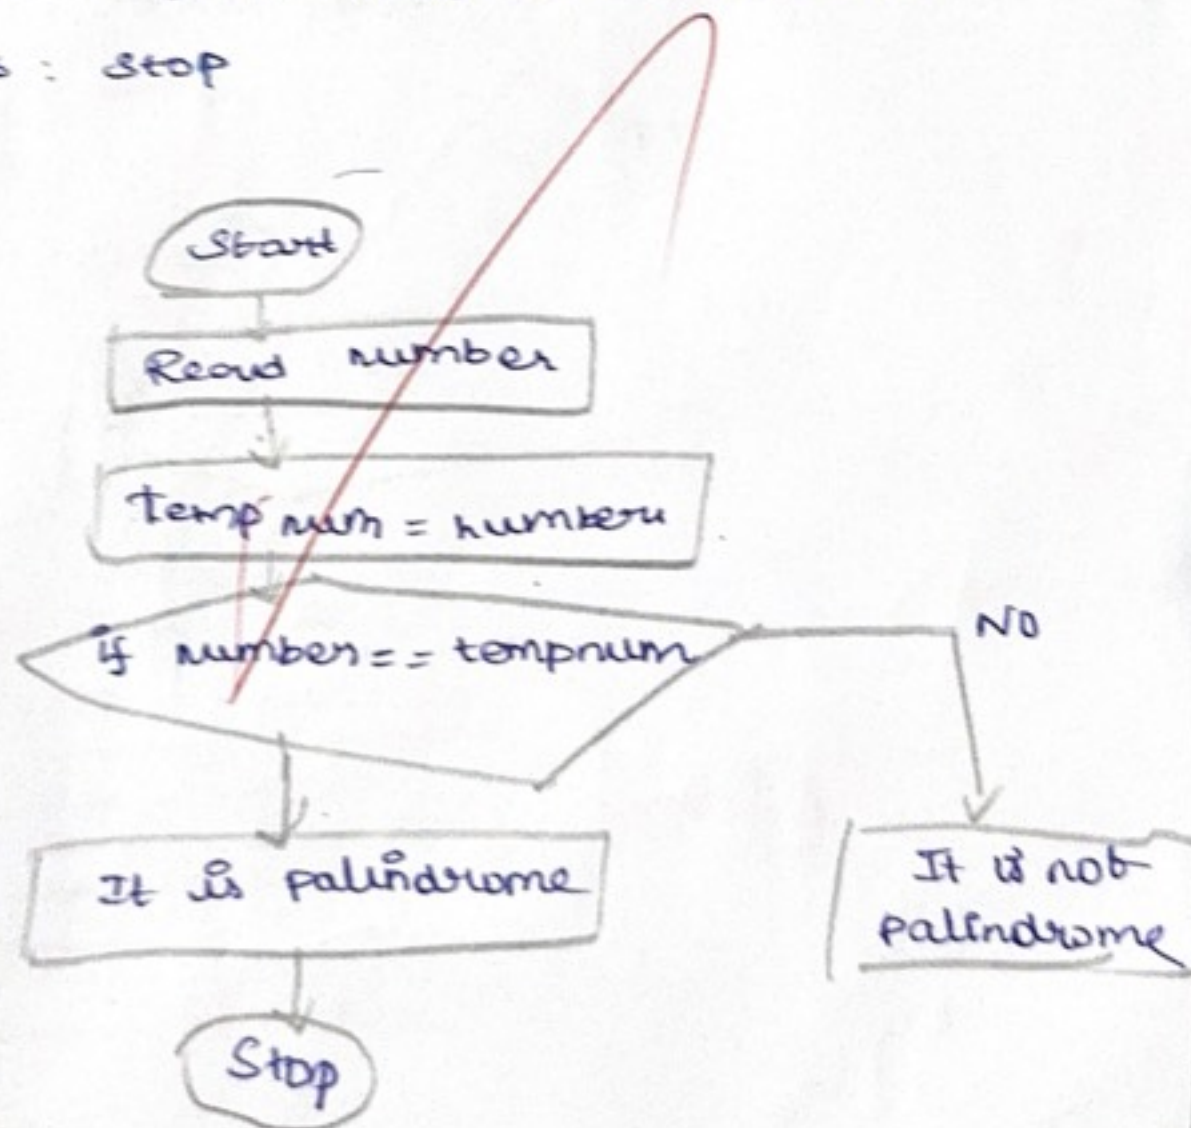 : stop
Start
Read number
Temp num = number
if number == tempnum
NO
It is palindrome
It is not
palindrome
Stop